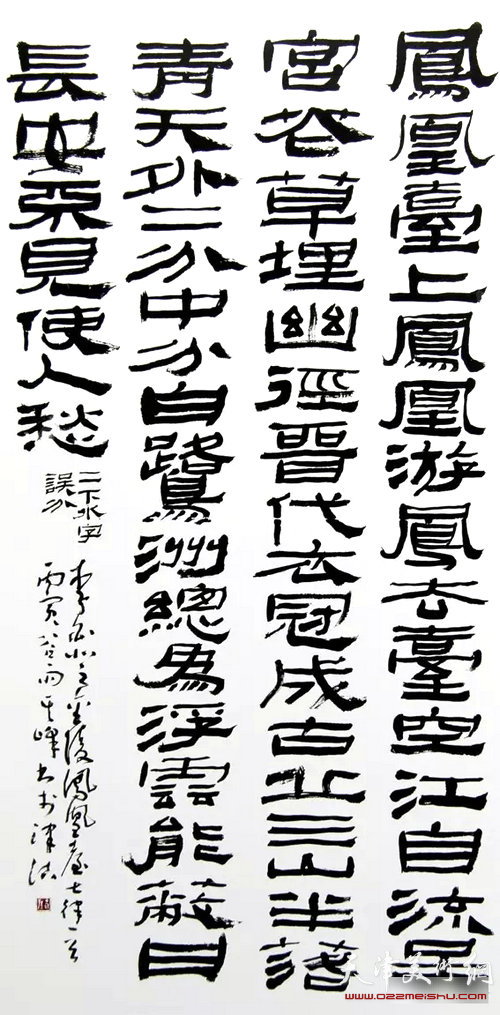 鳳凰臺上鳳凰游鳳去臺空江自流吳
宮花草埋幽徑晉代衣冠成古丘三山半落
青天外二分中分白鷺洲總為浮雲能蔽日
長安不見使人愁
二下水字
誤分
李白金陵鳳凰臺七律一首
丙寅雨其峰書津沽
天津美術網
www.022meishu.com